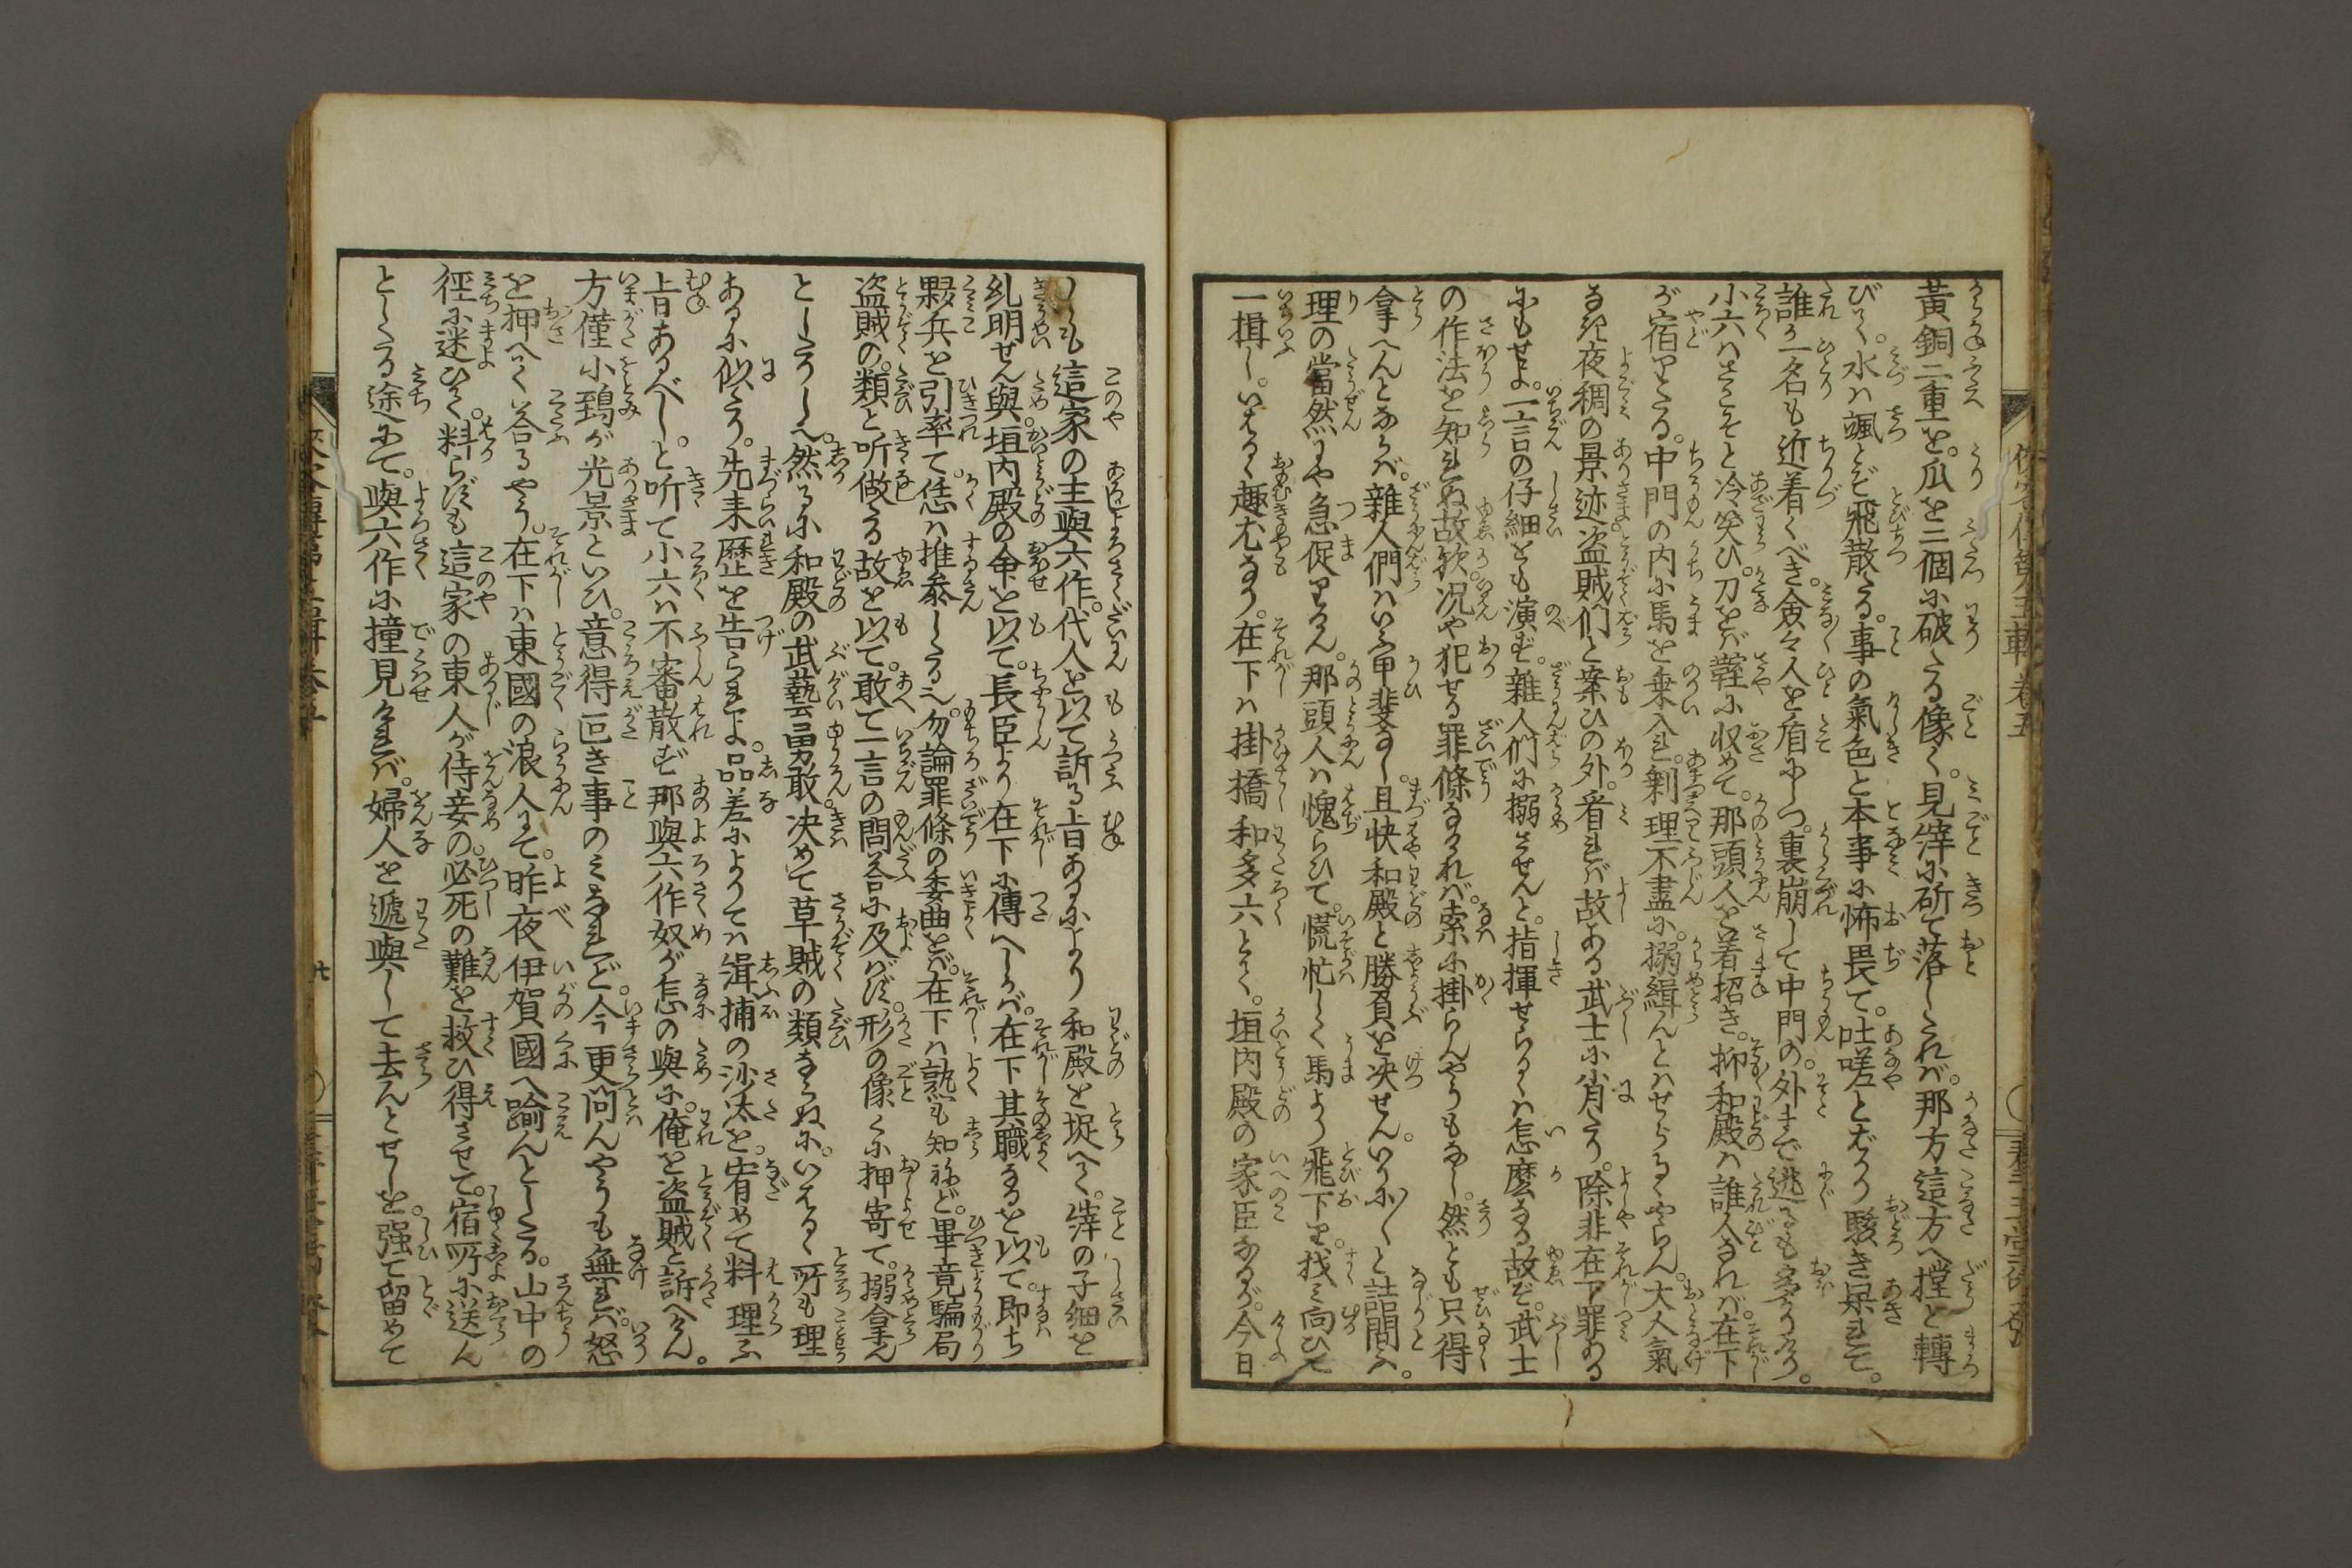 黄銅二重を。瓜を三個に破たる像く。見事に斫て落したれば。那方這方へ撑と轉
びて。水は颯とぞ飛散たる。事の氣色と本事に怖畏て。吐嗟とばかり駭き呆れて。
誰か一名も近着くべき。僉々人を盾にしつ。裏崩して中門の。外まで逃るも
小六はさこそと冷笑ひ。刀をば鞘に収めて。那頭人を着招き。抑和殿は誰人なれば。在下
が宿りたる。中門の内に馬を乗入れ。剰理不盡に。搦緝んとはせらるゝやらん。大人氣
なき夜稠の景迹盗賊們と案ひの外。看れば故ある武士に肖たり。除非在下罪ある
にもせよ。一言の仔細をも演ず。雜人們に搦させんと。指揮せらるゝは怎麼なる故ぞ。武士
の作法を知れぬ故欤。况や犯せる罪條なければ。索に掛らんやうもなし。然とも只得
拿へんとならば。雜人們はいふ甲斐なし。且快和殿と勝負を决せん。いかに〳〵と詰問へば。
理の當然にや急促りけん。那頭人は愧らひて。慌忙しく馬より飛下り。找み向ひて
一揖し。いはるゝ趣尤なり。在下は掛橋和多六とて。垣内殿の家臣なるが。今日
しも這家の主與六作。代人を以て訴る旨あるにより和殿を捉へて。縡の子細を
糺明せん與。垣内殿の命を以て。長臣より在下に傳へしかば。在下其職なるを以て。即ち
夥兵を引率て恁は推參したる也。勿論罪條の委曲をば。在下は熟も知ねど。畢竟騙局
盗賊の。類と听做たる故を以て。敢て一言の問答に及ばず。形の像くに押寄て。搦拿ん
としたりしへ。然るに和殿の武藝勇敢。决めて草賊の類ならぬに。いはるゝ所も理
あるに似たり。先来歴を告られよ。品差によりては緝捕の沙汰を。宥めて料理ふ
旨あるべし。と听て小六は不審散ず那與六作奴が怎の與に。俺を盗賊と訴へけん。
方僅小鵄が光景といひ。意得叵き事のみなれど。今更問んやうも無れば。怒
を押へて答るやう。在下は東國の浪人にて。昨夜伊賀國へ踰んとしたる。山中の
徑に迷ひて。料らずも這家の東人が侍妾の。必死の難を救ひ得させて。宿所に送ん
としたる途にて。與六作に撞見ければ。婦人を遞與して去んとせしを。强て留めて